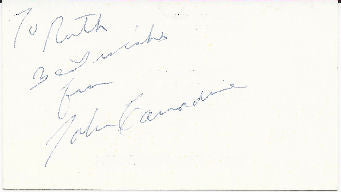 To Ruth
Best wishes
from
John Carradine